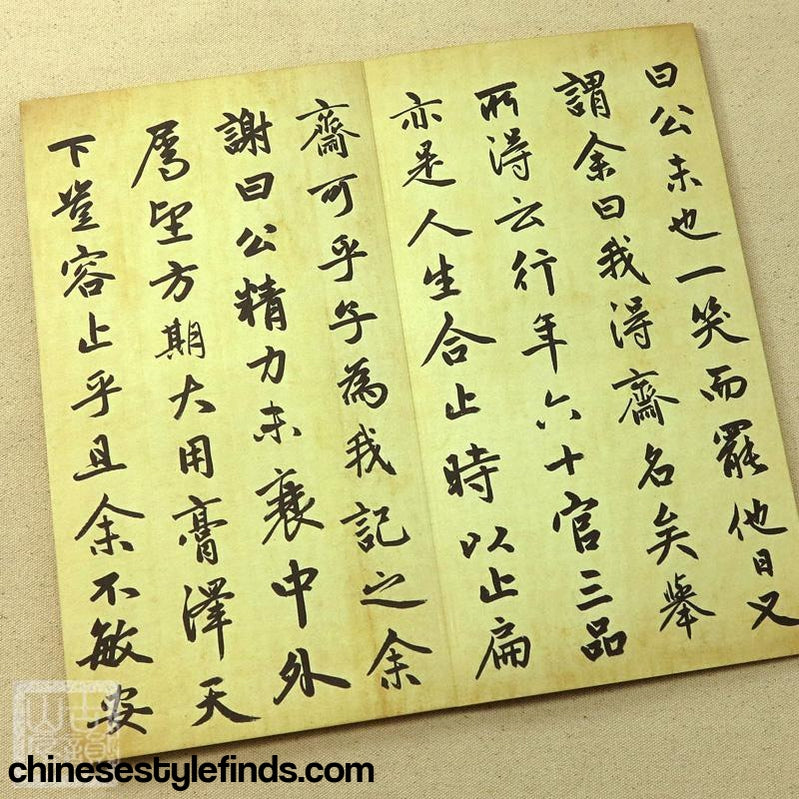 曰公未也一笑而罷他日又
謂余曰我得齋名矣舉
所得云行年六十官三品
亦是人生合止時以止扁
齋可乎子為我記之余
謝曰公精力未衰中外
属望方期大用膏澤天
下豈容止乎且余不敏安
chinesestylefinds.com